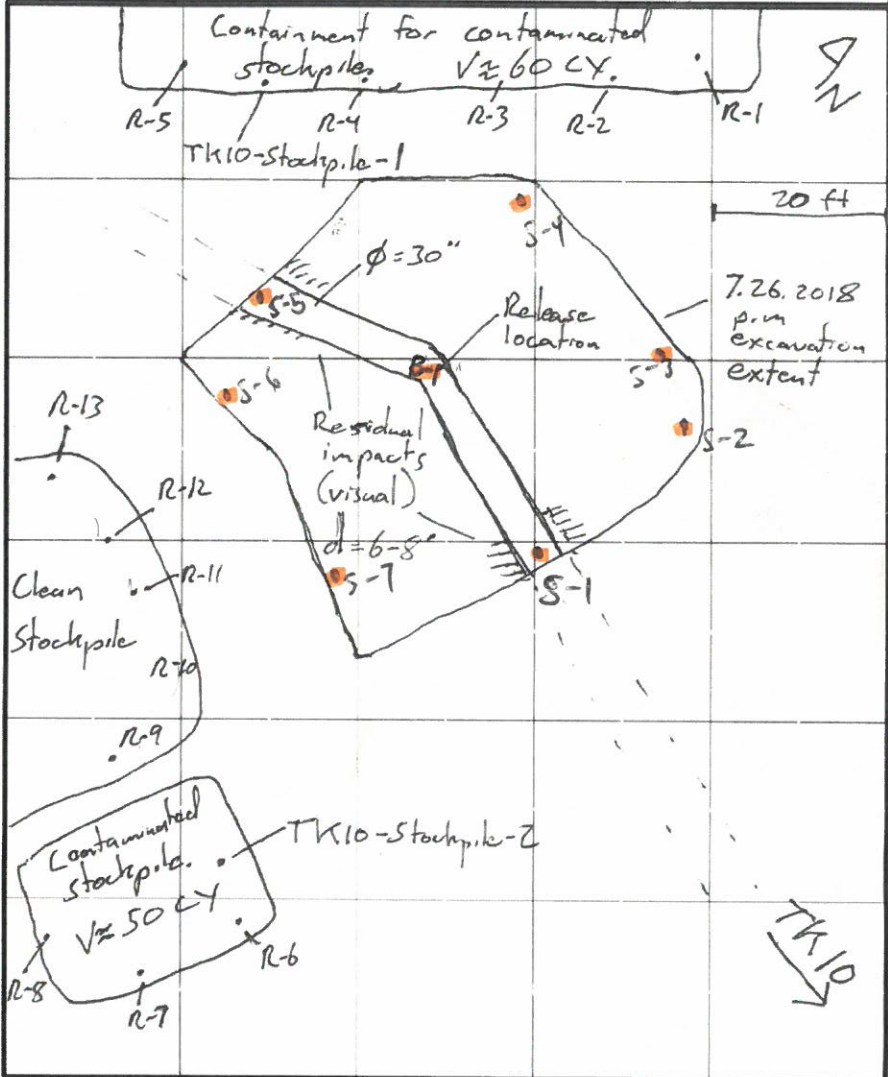 Containment for contaminated
stockpiles V≈60 CY
N
R-5
R-4
R-3
R-2
R-1
TK10-Stockpile-1
20 ft
S-4
ϕ=30"
S-5
Release
location
7.26.2018
p.m
excavation
extent
B-1
S-3
S-6
S-2
R-13
Residual
impacts
(visual)
d=6-8"
R-12
R-11
S-7
S-1
Clean
Stockpile
R-10
R-9
Contaminated
stockpile
V≈50 CY
TK10-Stockpile-2
R-6
R-8
R-7
TK10